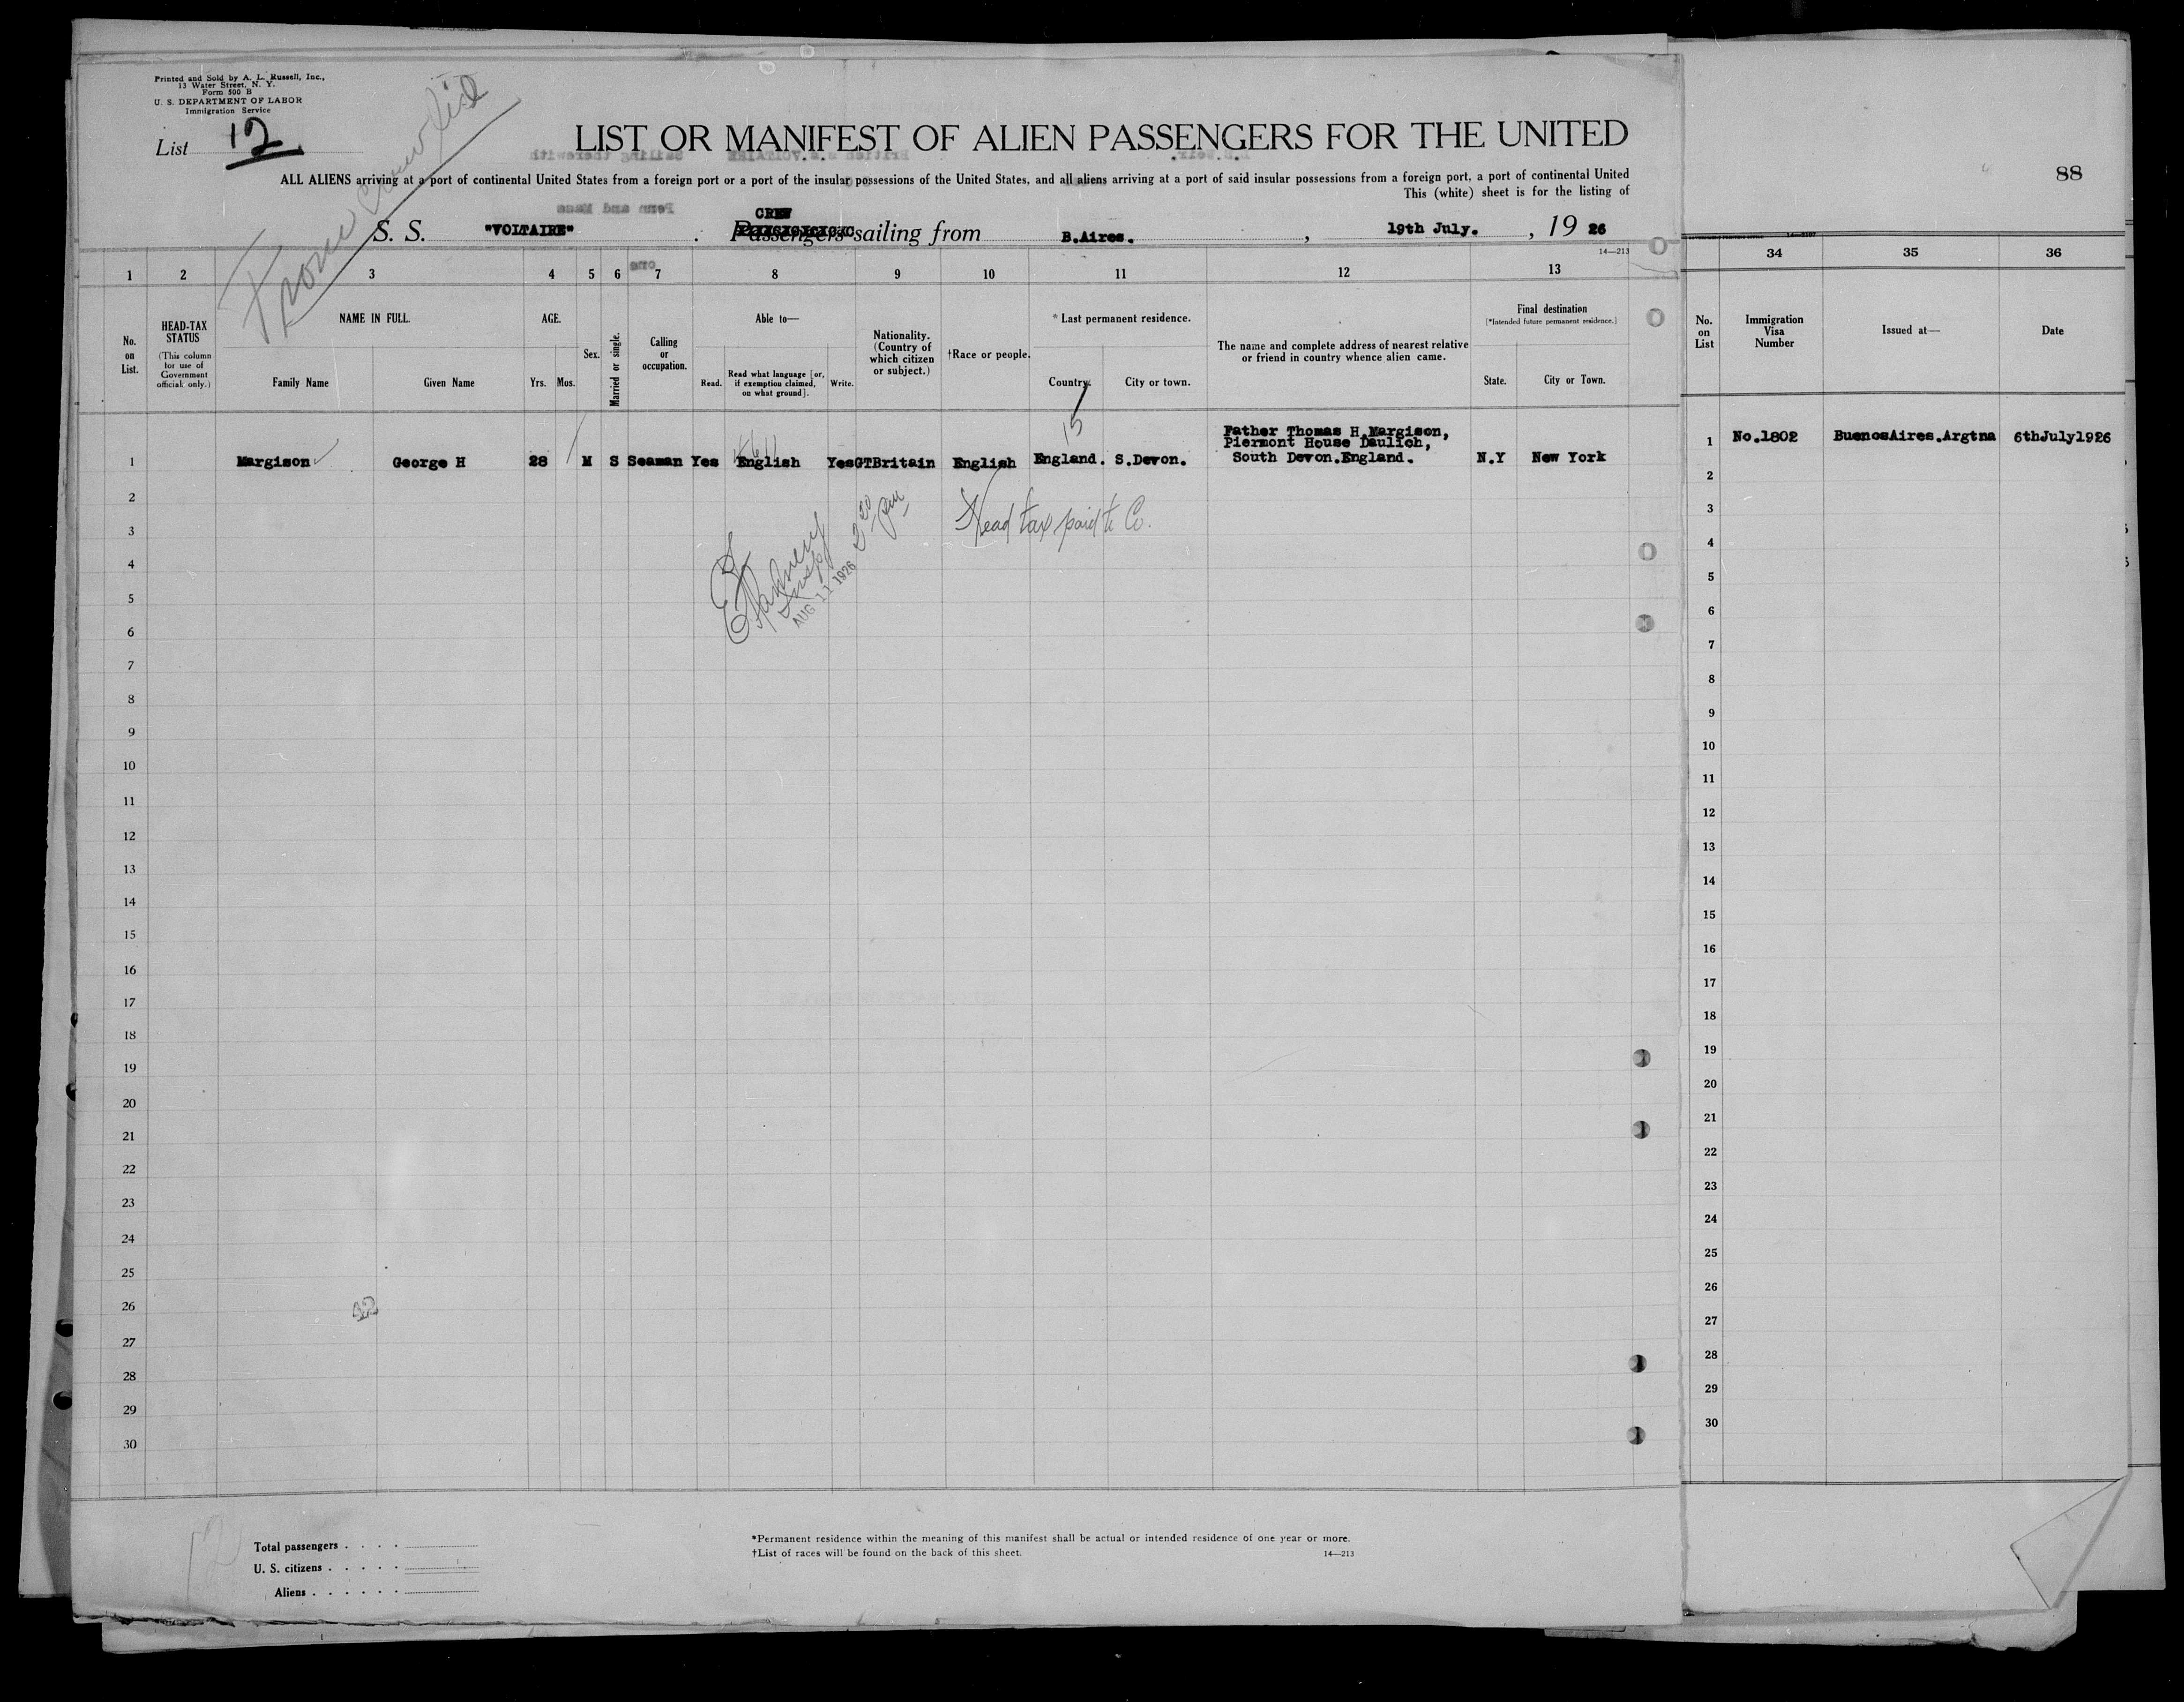 Printed and Sold by A. L. Russell, Inc.,
13 Water Street, N. Y.
Form 500 B
U. S. DEPARTMENT OF LABOR
Immigration Service
List 12
From Crew list
LIST OR MANIFEST OF ALIEN PASSENGERS FOR THE UNITED
ALL ALIENS arriving at a port of continental United States from a foreign port or a port of the insular possessions of the United States, and all aliens arriving at a port of said insular possessions from a foreign port, a port of continental United
This (white) sheet is for the listing of
88
CREW
S. S. "VOLTAIRE" . Passengers sailing from B.Aires. , 19th July. , 19 26
14—213
1 2 3 4 5 6 7 8 9 10 11 12 13 34 35 36
No. on List.
HEAD-TAX STATUS
(This column for use of Government officials only.)
NAME IN FULL.
Family Name Given Name
AGE.
Yrs. Mos.
Sex.
Married or single.
Calling or occupation.
Able to—
Read. Read what language [or, if exemption claimed, on what ground]. Write.
Nationality. (Country of which citizen or subject.)
†Race or people.
*Last permanent residence.
Country. City or town.
The name and complete address of nearest relative or friend in country whence alien came.
Final destination
(*Intended future permanent residence.)
State. City or Town.
No. on List
Immigration Visa Number
Issued at—
Date
15
Father Thomas H.Margison,
Piermont House Daulich,
South Devon.England.
1 Margison George H 28 M S Seaman Yes English Yes GTBritain English England. S.Devon. N.Y New York
1 No.1802 BuenosAires.Argtna 6thJuly1926
Head tax paid to Co.
Insp
AUG 11 1926 2 20 pm
2
3
4
5
6
7
8
9
10
11
12
13
14
15
16
17
18
19
20
21
22
23
24
25
26
27
28
29
30
2
3
4
5
6
7
8
9
10
11
12
13
14
15
16
17
18
19
20
21
22
23
24
25
26
27
28
29
30
12
Total passengers . . . .
U. S. citizens . . . . .
Aliens . . . . . .
*Permanent residence within the meaning of this manifest shall be actual or intended residence of one year or more.
†List of races will be found on the back of this sheet.
14—213